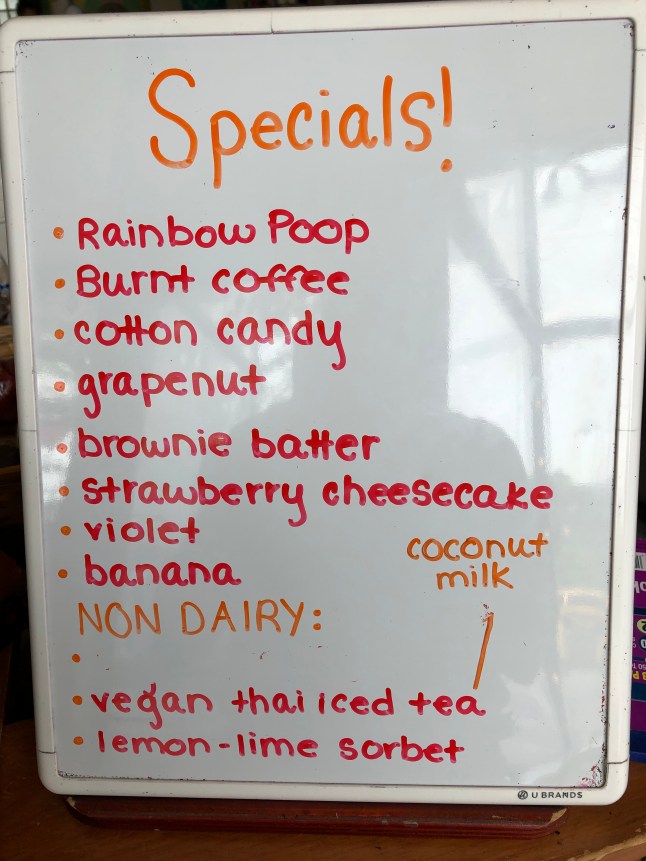 Specials!
• Rainbow Poop
• Burnt coffee
• cotton candy
• grapenut
• brownie batter
• strawberry cheesecake
• violet
• banana
coconut
milk
NON DAIRY:
•
• vegan thai iced tea
• lemon-lime sorbet
U BRANDS